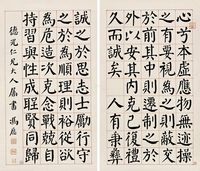 心兮本虛應物無迹操
之有要視為之則蔽交
於前其中則遷制之於
外以安其內克己復禮
久而誠矣 人有秉彝
誠之於思志士勵行守
之於為順理則裕從欲
惟危造次克念戰兢自
持習與性成聖賢同歸
德元仁兄大人屬書 馮